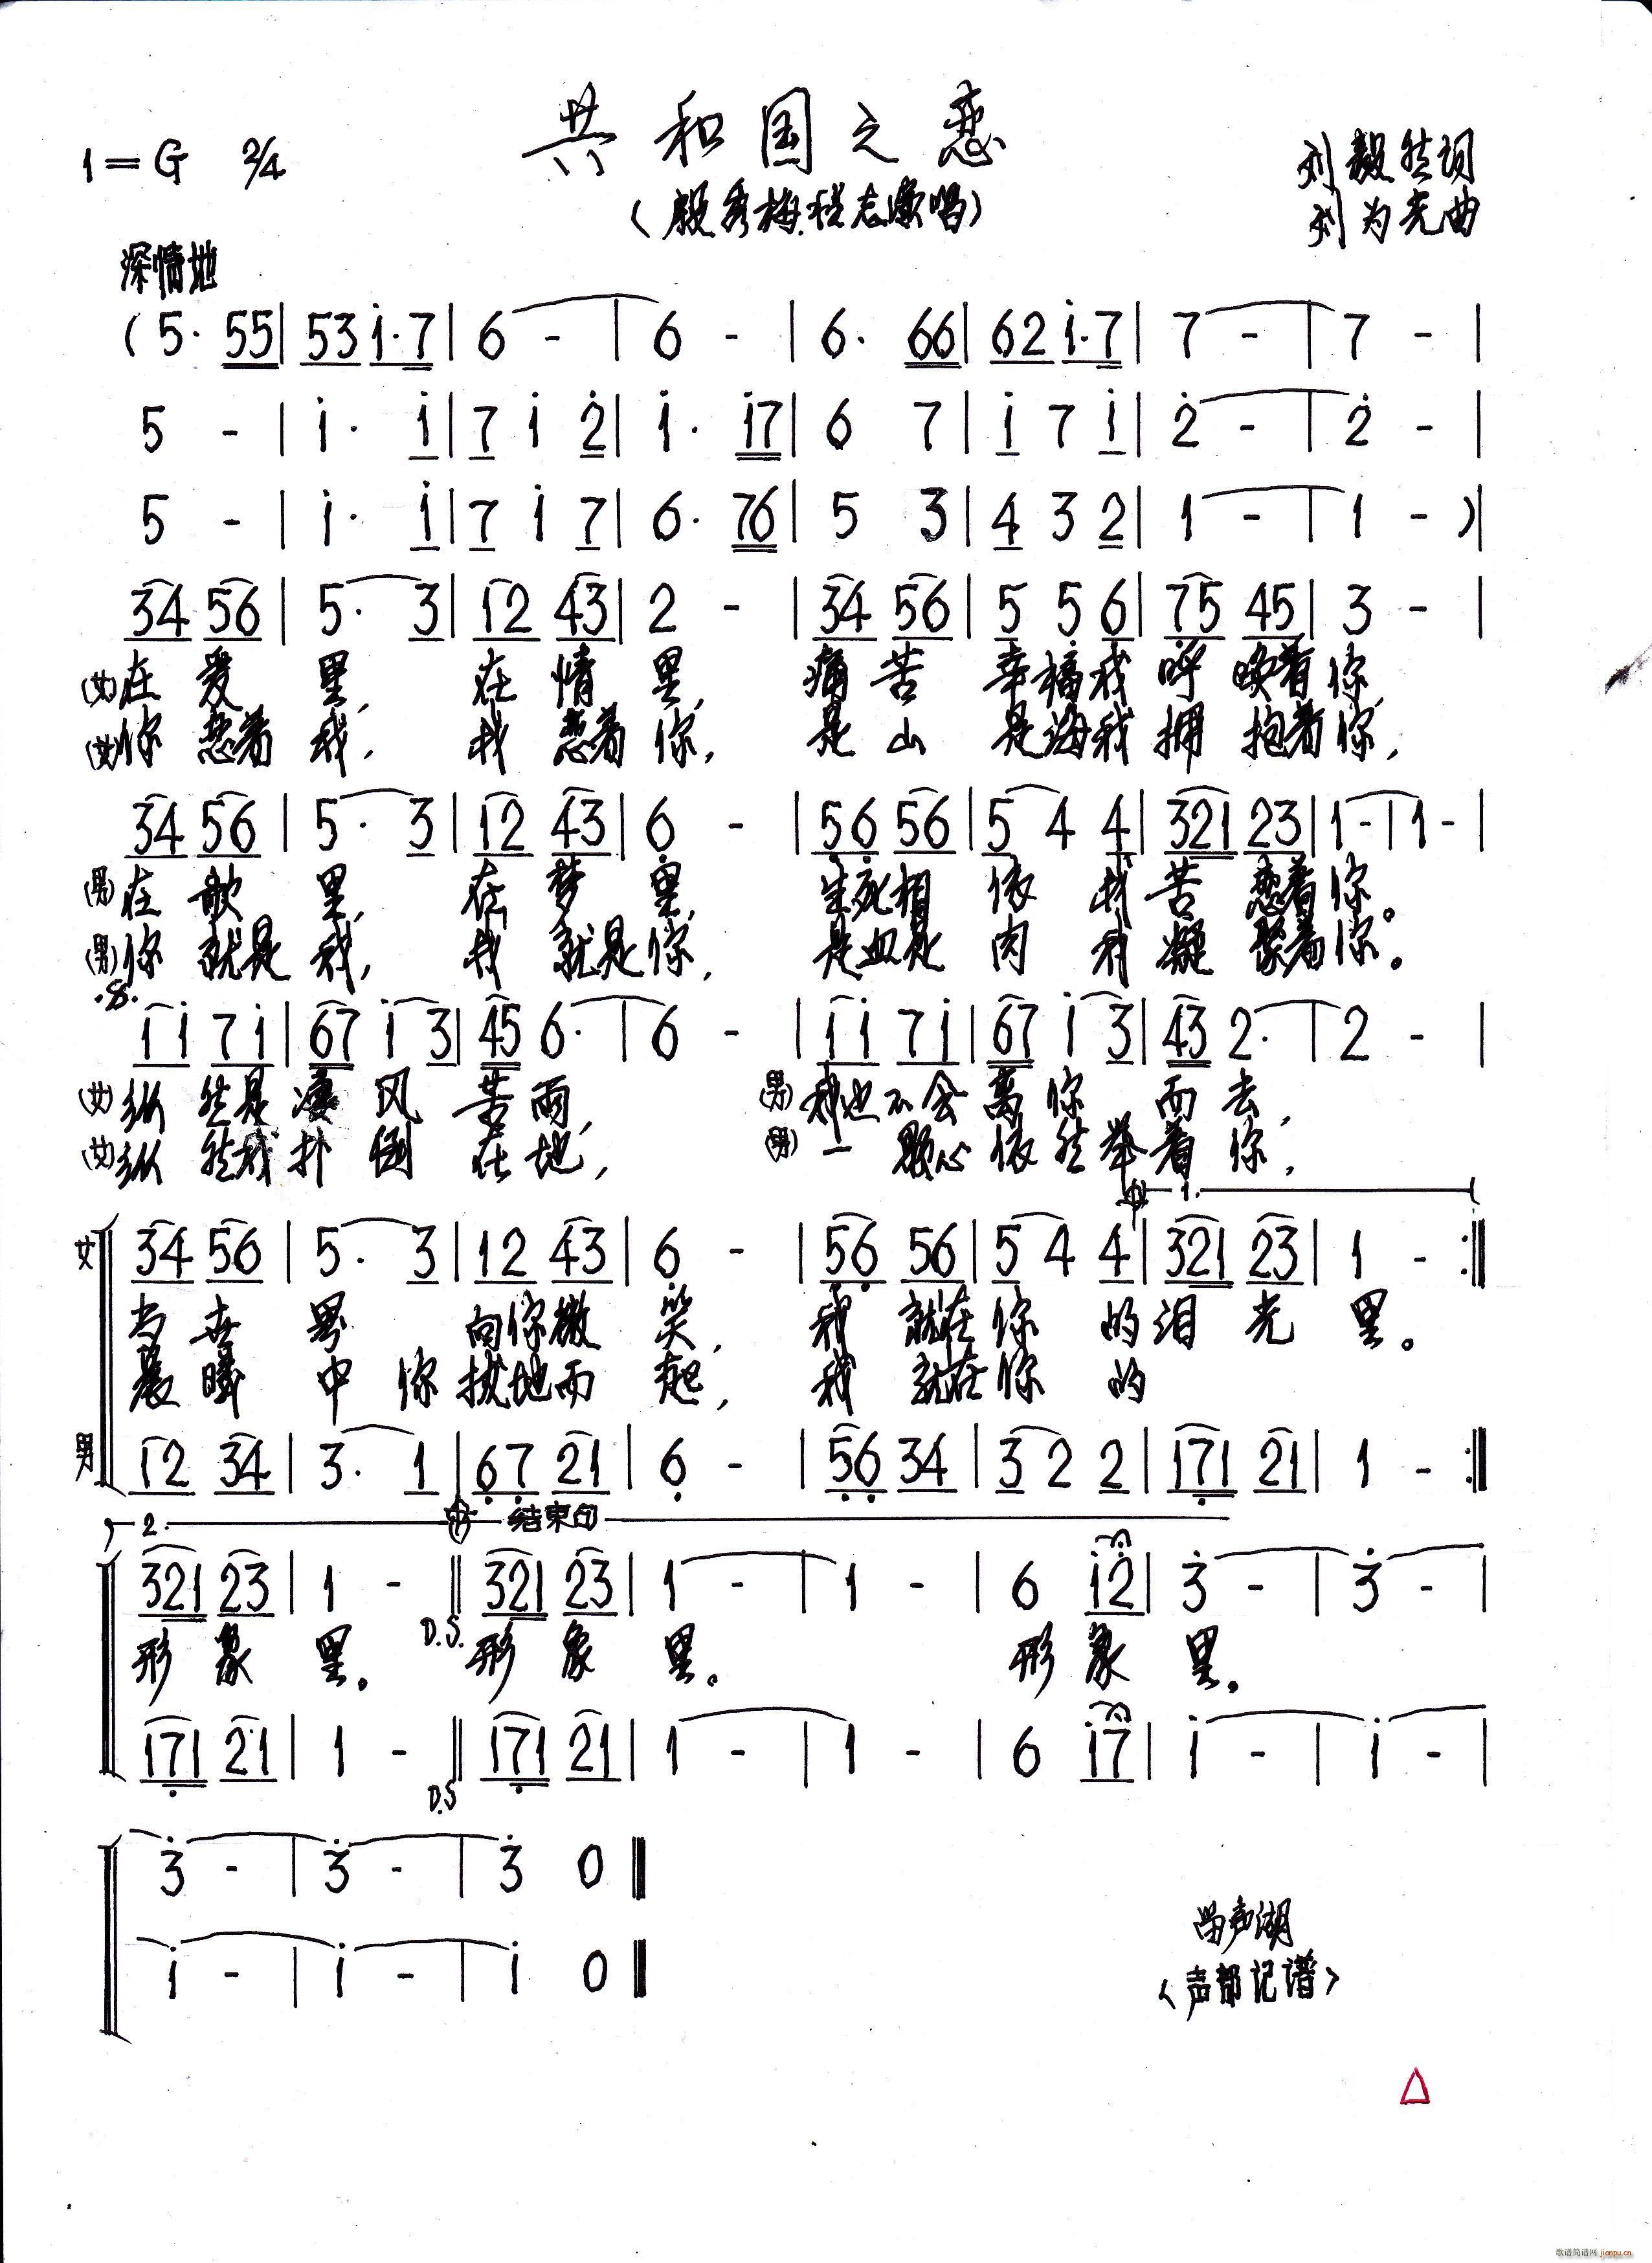 共和国之恋
1=G 2/4
(殷秀梅.程志演唱)
刘毅然词
刘为光曲
深情地
(5· 55| 53 1·7| 6 - | 6 - | 6· 66| 62 1·7| 7 - | 7 - |
5 - | 1· 1| 7 1 2| 1· 17| 6 7 | 1 7 1| 2 - | 2 - |
5 - | 1· 1| 7 1 7| 6· 76| 5 3| 4 3 2| 1 - | 1 - )|
34 56 | 5· 3| 12 43| 2 - | 34 56| 5 5 6| 75 45| 3 - |
(女)在爱里,在情里,痛苦幸福我呼唤着你,
(女)你恋着我,我恋着你,是山是海我拥抱着你,
34 56 | 5· 3| 12 43| 6 - | 56 56| 5 4 4| 321 23| 1 - | 1 - |
(男)在歌里,在梦里,生死相依我苦恋着你。
(男)你就是我,我就是你,是血是肉我凝聚着你。
·S·
11 71| 67 1 3| 45 6· | 6 - | 11 71| 67 1 3| 43 2· | 2 - |
(女)纵然是凄风苦雨,(男)我也不会离你而去,
(女)纵然我扑倒在地,(男)一颗心依然举着你,
1.
女 34 56| 5· 3| 12 43| 6 - | 56 56| 5 4 4| 321 23| 1 - :||
当世界向你微笑,我就在你的泪光里。
晨曦中你拔地而起,我就在你的
男 12 34| 3· 1| 67 21| 6 - | 56 34| 3 2 2| 171 21| 1 - :||
2. 结束句
321 23| 1 - || 321 23| 1 - | 1 - | 6 12| 3 - | 3 - |
形象里。D.S.形象里。形象里。
171 21| 1 - || 171 21| 1 - | 1 - | 6 17| 1 - | 1 - |
D.S
3 - | 3 - | 3 0 ||
1 - | 1 - | 1 0 ||
留声湖
<声部记谱>
歌谱简谱网 jianpu.cn